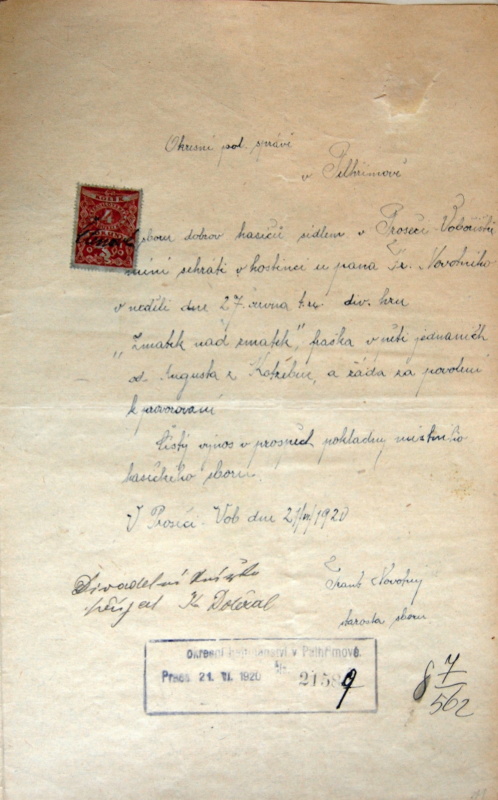 Okresní pol. správě
v Pelhřimově
Sbour dobrov hasičů sídlem v Proseči Vobořiště
míní sehráti v hostinci u pana Fr. Novotného
v neděli dne 27. června t.r. div. hru
„Zmatek nad zmatek", fraška v pěti jednáních
od Augusta z Kotzebue, a žádá za povolení
k provozování
Čistý výnos v prospěch pokladny místního
hasičského sboru.
V Proseči-Vob dne 21/VI 1920
Frant Novotný
starosta sboru
Divadelní knížku
přijal K. Doležal
okresní hejtmanství v Pelhřimově.
Praes 21. VI. 1920 21589
8 7/562